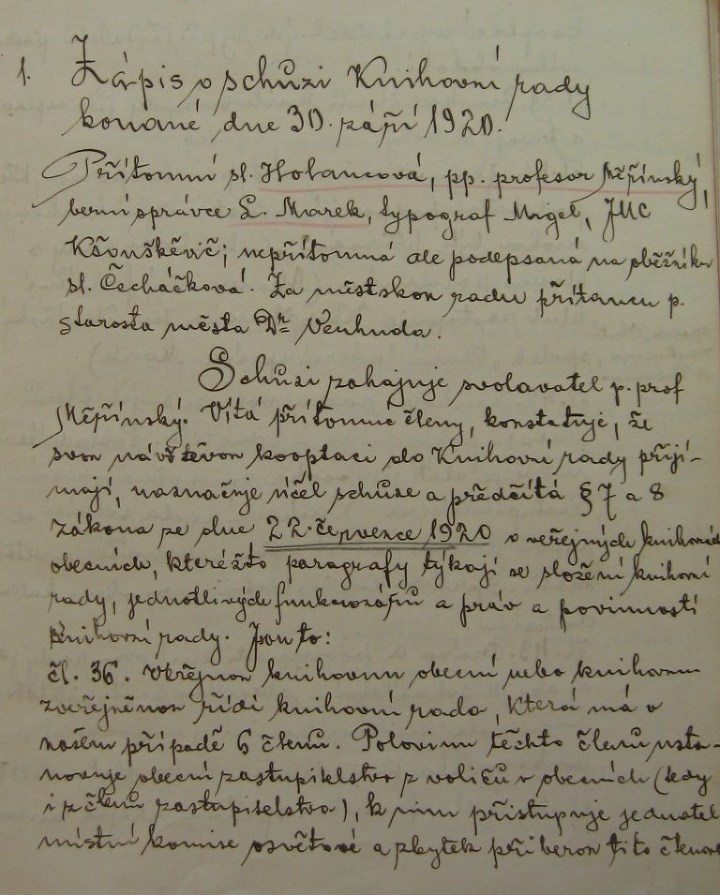 1. Zápis o schůzi Knihovní rady
konané dne 30. září 1920.
Přítomni sl. Holancová, pp. profesor Měřínský,
berní správce L. Marek, typograf Migel, JUC
nepřítomná ale podepsaná na oběžníku
sl. Čecháčková. Za městskou radu přítomen p.
starosta města Dr Venhuda.
Schůzi zahajuje svolavatel p. prof
Měřínský. Vítá přítomné členy, konstatuje, že
svou návštěvou kooptaci do Knihovní rady přijí-
mají, naznačuje účel schůze a předčítá § 7 a 8
zákona ze dne 22. července 1920 o veřejných knihovnách
obecních, kteréžto paragrafy týkají se složení knihovní
rady, jednotlivých funkcionářů a práv a povinností
Knihovní rady. Jsou to:
čl. 36. Veřejnou knihovnu obecní nebo knihovnu
zveřejněnou řídí knihovní rada, která má v
našem případě 6 členů. Polovinu těchto členů usta-
novuje obecní zastupitelstvo z voličů v obecních (kdy
i z členů zastupitelstva), k nim přistupuje jednatel
místní komise osvětové a zbytek přiberou tito členové